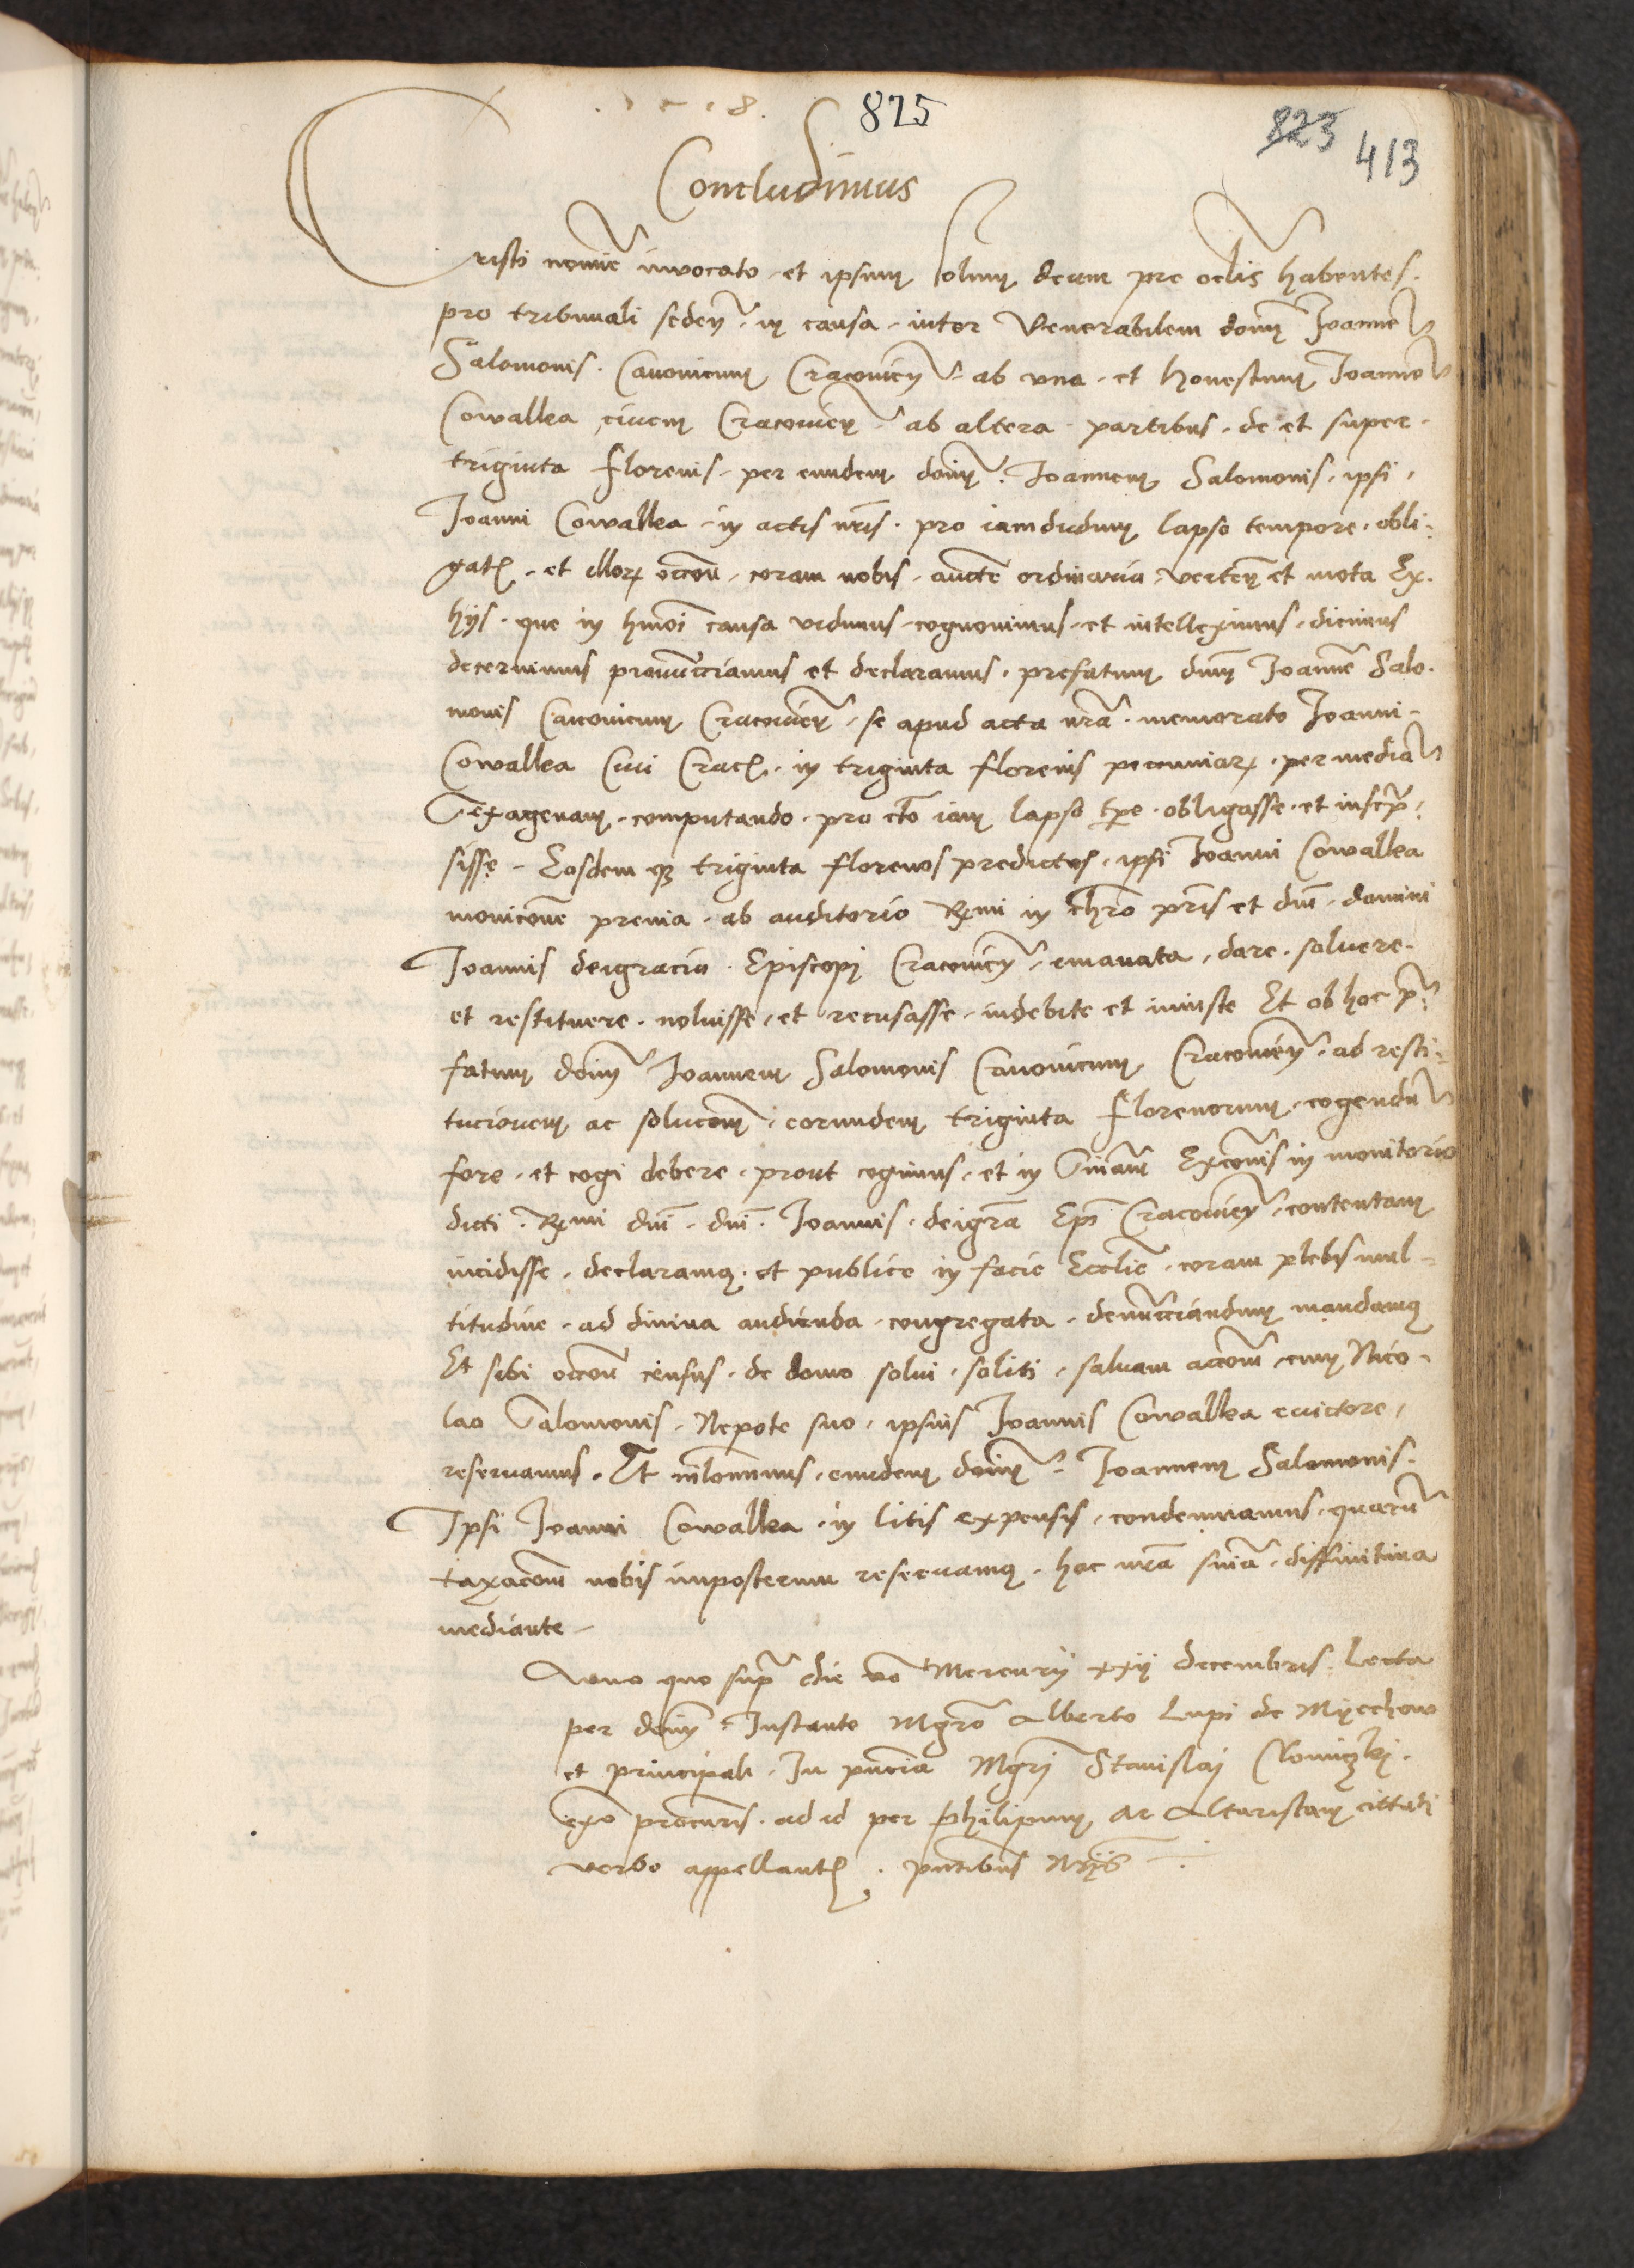 1518.
825
823 413
Concludimus
Cristi nomie invocato et ipsum solum deum pre oclis habentes.
pro tribunali seden. in causa inter Venerabilem domm Joannem
Salomonis Canonicum Cracovien ab una et honestum Joannem
Cowallea civem Cracovien ab altera partibus de et super
triginta florenis per eundem domm Joannem Salomonis ipsi
Joanni Cowallea in actis nris pro iamdudum lapso tempore obli-
gat. et illorum occoe coram nobis aucte ordinaria verten et mota Ex
hijs que in hmoi causa vidimus cognovimus et intelleximus dicimus
decernimus pronuncciamus et declaramus prefatum dnm Joanne Salo-
monis Canonicum Cracovien se apud acta nra memorato Joanni
Cowallea Civi Crac. in triginta florenis pecuniar. per mediam
Sexagenam computando pro cto iam lapso tpe obligasse et inscrip-
sisse Eosdemq; triginta florenos predictos ipsi Joanni Cowallea
monicone previa ab auditorio Rmi in chro pris et dni domini
Joannis deigracia Episcopi Cracovien emanata dare solvere
et restituere noluisse et recusasse indebite et iniuste Et ob hoc p-
fatum domm Joannem Salomonis Canonicum Cracovien ad resti-
tucionem ac solucom eorundem triginta florenorum cogendum
fore et cogi debere prout cogimus et in Sniam Excomis in monitorio
dicti Rmi dni dni Joannis deigra Epi Cracovien contentam
incidisse declaramq; et publice in facie Ecclie coram plebis mul-
titudine ad divina audienda congregata denuncciandum mandamq;
Et sibi occoe census de domo solui soliti salvam accom cum Nico-
lao Salomonis Nepote suo ipsius Joannis Cowallea evictore
reservamus Et nilominus eundem domm Joannem Salomonis
Ipsi Joanni Cowallea in litis expensis condemnamus quarum
taxacom nobis imposterum reservamq; hac nra snia diffinitiva
mediante
Anno quo supra die vo Mercurij xxij decembris Lecta
per domm Instante Mgro Alberto Lupi de Myechow
et principali In pncia Mgri Stanislaj
procuris ad id per Philipum Ar Altaristam cittati
verbo appellant. pntibus Nrijs